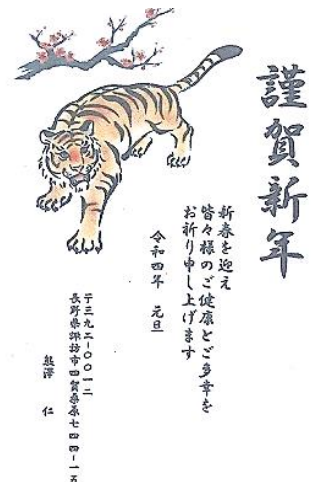 謹賀新年
新春を迎え
皆々様のご健康とご多幸を
お祈り申し上げます
令和四年　元旦
〒三九二－〇〇一二
長野県諏訪市四賀桑原七四四－一五
熊澤　仁